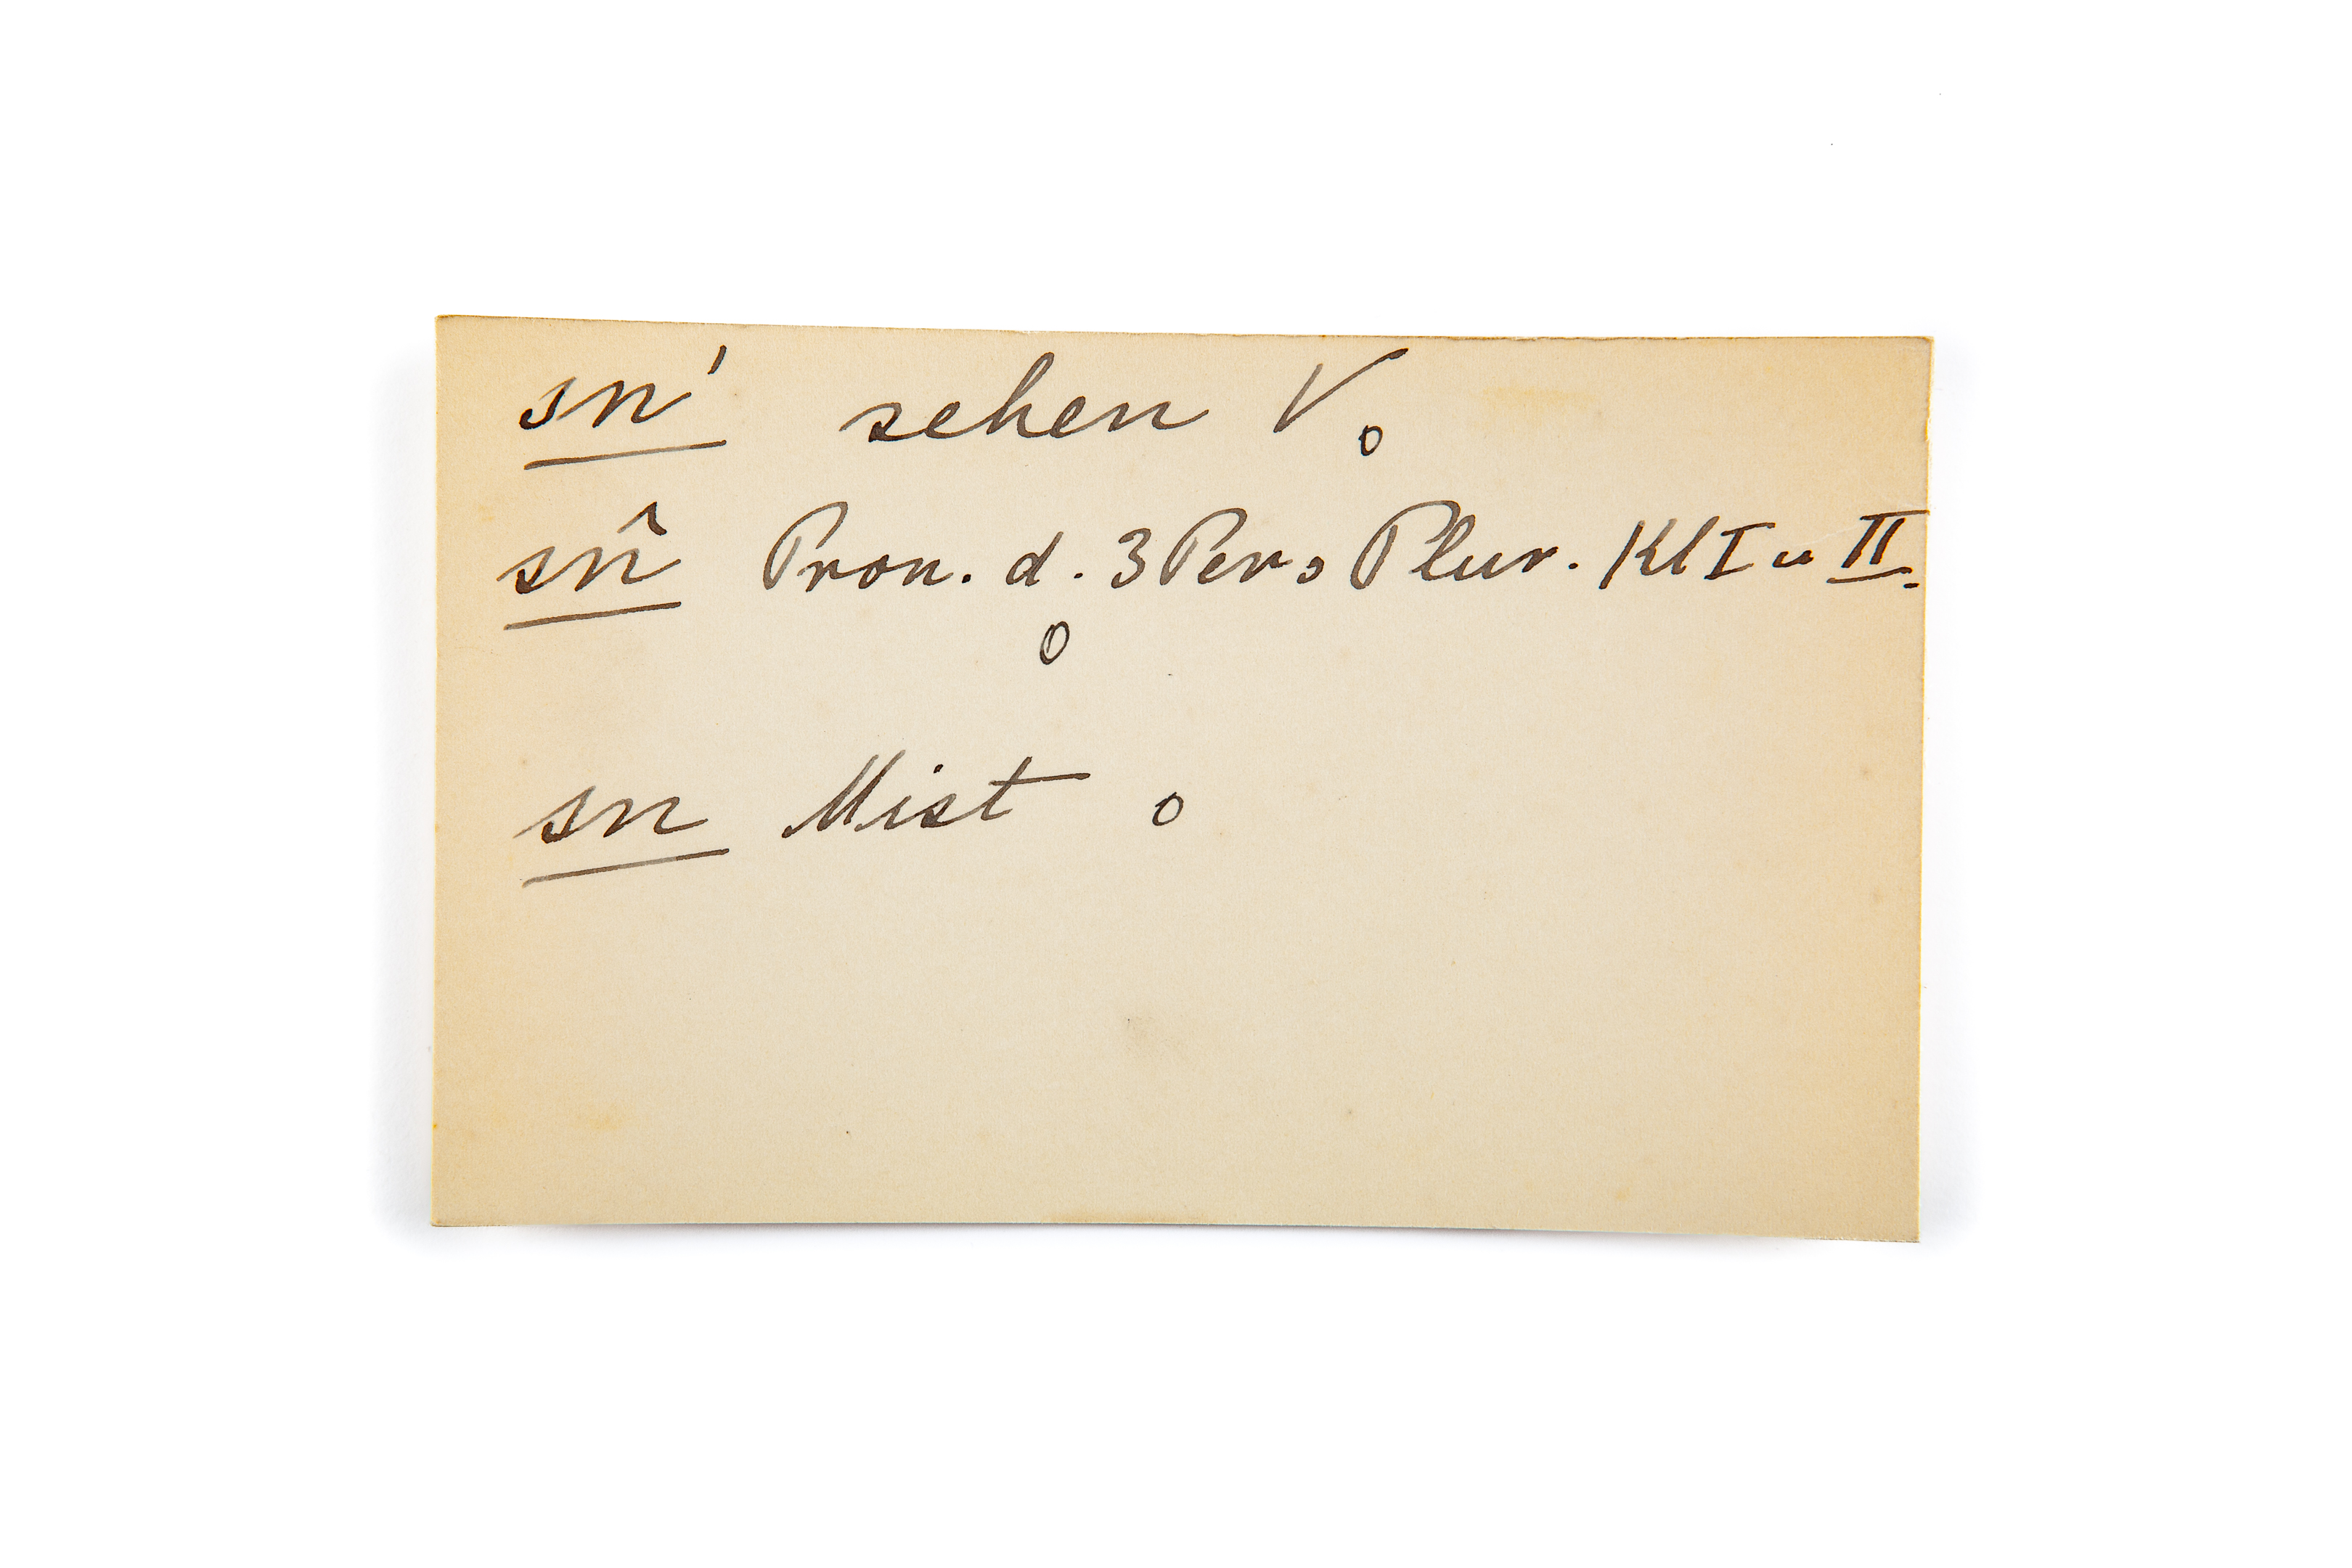 sn' sehen V o
sn̂ Pron. d. 3 Pers Plur. Kl I u II.
o
sn Mist o